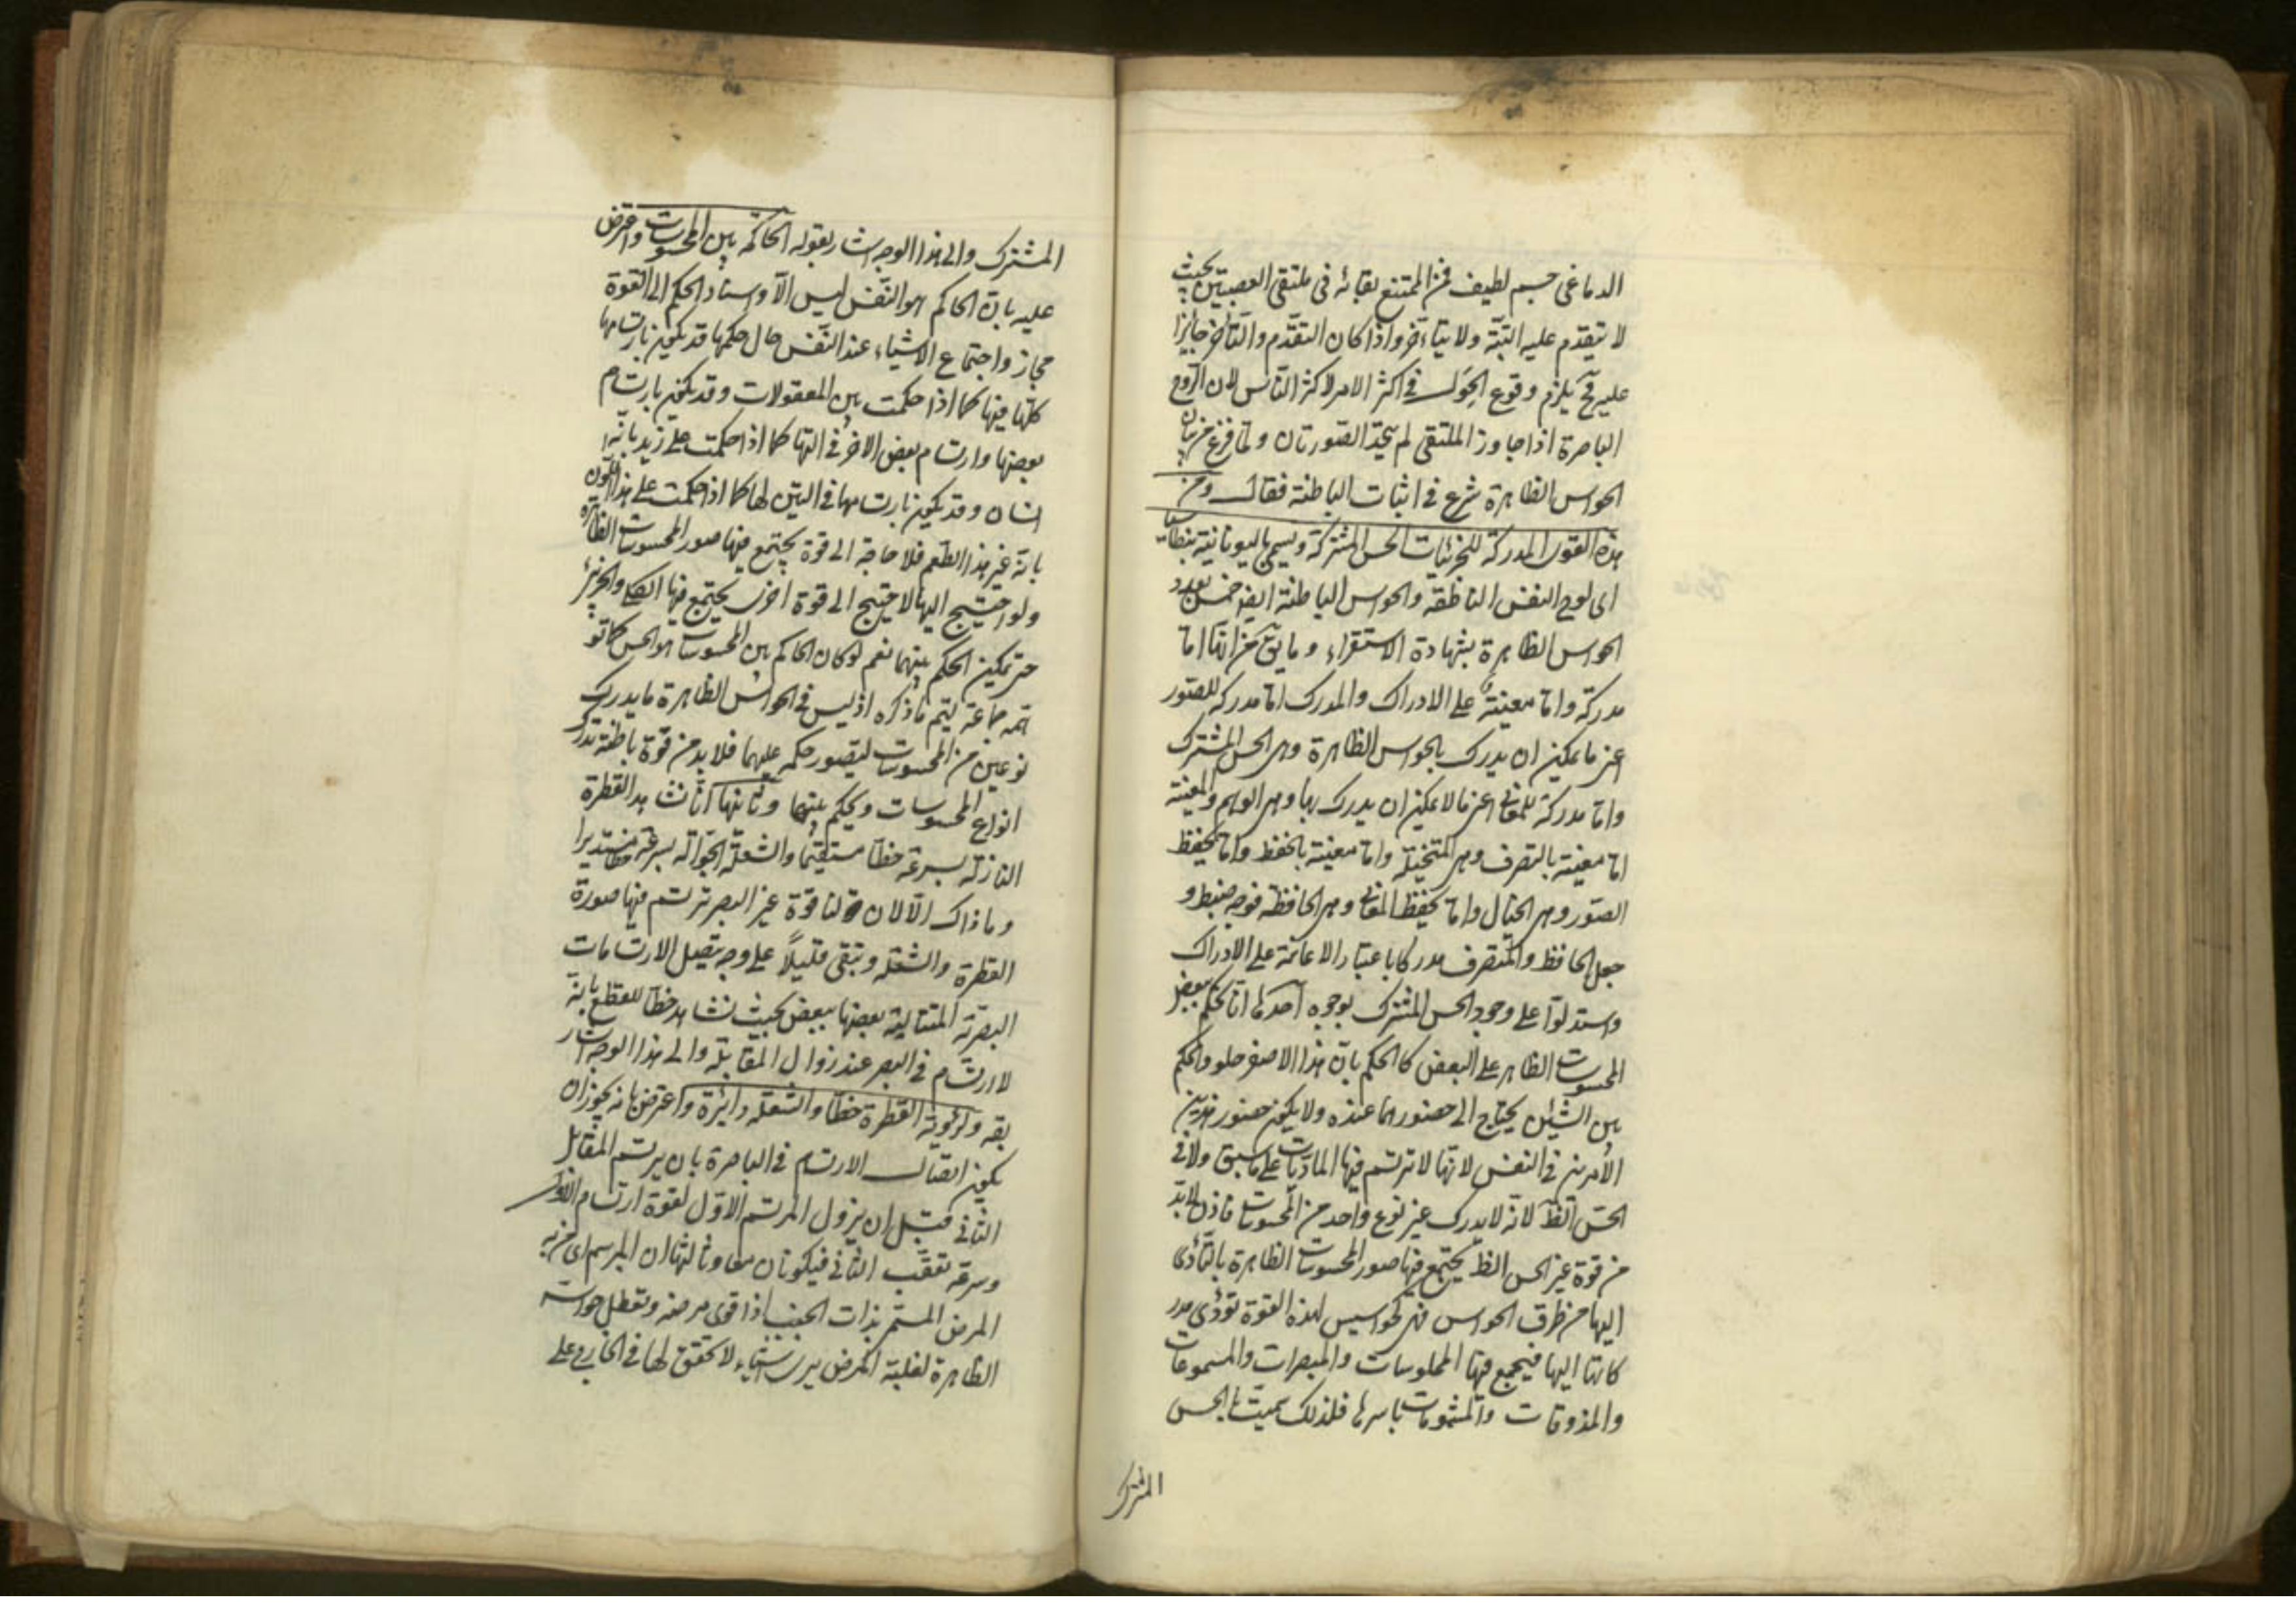 الدماغى جسم لطيف فمن الممتنع بقائه فى ملتقى العصبتين بحيث
لا يتقدم عليه البتّة ولا يتأخر واذا كان التقدّم والتأخر جايزا
عليه فح يلزم وقوع الحَوَل فى اكثر الامر لاكثر الناس لان الروح
الباصرة اذا جاوز الملتقى لم يتحد الصّورتان ولما فرغ من بيان
الحواس الظاهرة شرع فى اثبات الباطنة فقال ومن
هذه القوى المدركة للجزئيات الحس المشترك ويسمى باليونانية بنطاسيا
اى لوح النفس الناطقة والحواس الباطنة ايضا خمس بعدد
الحواس الظاهرة بشهادة الاستقراء وما يق من انها اما
مدركة واما معينة على الادراك والمدرك اما مدركة للصّور
اعنى ما يمكن ان يدرك بالحواس الظاهرة وهى الحس المشترك
واما مدركة للمعانى اعنى ما لا يمكن ان يدرك بها وهى الوهم والمعينة
اما معينة بالتصرف وهى المتخيّلة واما معينة بالحفظ واما يحفظ
الصّور وهى الخيال واما يحفظ المعانى وهى الحافظة فوجه ضبط و
جعل الحافظ والمتصرف مدركا باعتبار الاعانة على الادراك
واستدلوا على وجود الحس المشترك بوجوه احدها انا نحكم ببعض
المحسوسات الظاهر على البعض كالحكم بانّ هذا الاصفر حلو والحكم
بين الشيئين يحتاج الى حضورهما عنده ولا يكون حضور هذين
الأمرين فى النفس لانها لا ترتسم فيها الماديّات على ما سبق ولا فى
الحسّ الظّ لانه لا يدرك غير نوع واحد من المحسوسات فاذن لابدّ
من قوة غير الحس الظ يجتمع فيها صور المحسوسات الظاهرة بالتأدّى
اليها من طرق الحواس فهى كجواسيس لهذه القوة تؤدّى مدر
كاتها اليها فيجمع فيها الملموسات والمبصرات والمسموعات
والمذوقات والمشمومات باسرها فلذلك سميت بالحس
المشترك
المشترك والى هذا الوجه اشار بقوله الحاكمة بين المحسوسات واعترض
عليه بانّ الحاكم هو النّفس ليس الّا واسناد الحكم الى القوة
مجاز واجتماع الاشياء عند النّفس حال حكمها قد يكون بارتسامها
كلّها فيها كما اذا حكمت بين المعقولات وقد يكون بارتسام
بعضها وارتسام بعض الاخر فى التها كما اذا حكمت على زيد بانّه
انسان وقد يكون بارتسامها فى التين لها كما اذا حكمت على هذا اللون
بانّه غير هذا الطّعم فلا حاجة الى قوة يجتمع فيها صور المحسوسات الظاهرة
ولو احتيج اليها لاحتيج الى قوة اخرى يجتمع فيها الكلى والجزئى
حتى يمكن الحكم بينهما نعم لو كان الحاكم بين المحسوسات هو الحس كما تو
همه جماعة ليتم ما ذكره اذ ليس فى الحواس الظاهرة ما يدرك
نوعين من المحسوسات ليتصور حكمه عليهما فلابد من قوّة باطنة تدرك
انواع المحسوسات ويحكم بينهما وثانيها انا نشاهد القطرة
النازلة بسرعة خطّا مستقيما والشعلة الجوّالة بسرعة خطّا مستديرا
وما ذاك الّا لان لنا قوة غير البصر ترتسم فيها صورة
القطرة والشعلة وتبقى قليلًا على وجه يتصل الارتسامات
البصريّة المتتالية بعضها ببعض بحيث نشاهد خطّا للقطع بانه
لا ارتسام فى البصر عند زوال المقابلة والى هذا الوجه اشار
بقوله ولرؤية القطرة خطّا والشعلة دائرة واعترض بانه يجوز ان
يكون اتصال الارتسام فى الباصرة بان يرتسم المقابل
الثانى قبل ان يزول المرتسم الاوّل لقوة ارتسام الاول
وسرعة تعقّب الثانى فيكونان معا وثالثها ان المبرسم اى من به
المرض المسمّى بذات الجنب اذا قوى مرضه وتعطل حواسه
الظاهرة لغلبة المرض يرى اشياء لا تحقق لها فى الخارج على